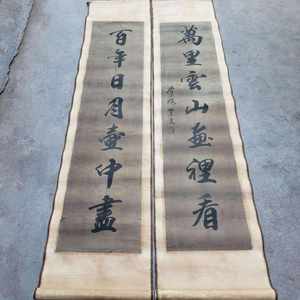 萬里雲山畫裡看
百年日月壺中盡